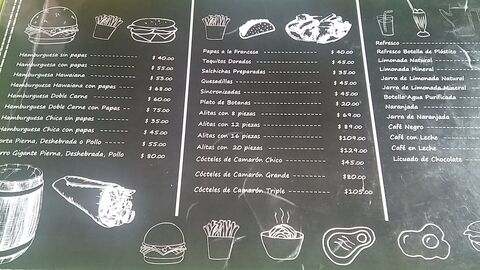 Hamburguesa sin papas $ 40.00
Hamburguesa con papas $ 55.00
Hamburguesa Hawaiana $ 53.00
Hamburguesa Hawaiana con papas $ 68.00
Hamburguesa Doble Carne $ 60.00
Hamburguesa Doble Carne con Papas $ 75.00
Hamburguesa Chica sin papas $ 35.00
Hamburguesa Chica con papas $ 45.00
orta Pierna, Deshebrada o Pollo $ 55.00
rro Gigante Pierna, Deshebrada, Pollo $ 80.00
Papas a la Francesa $ 40.00
Taquitos Dorados $ 45.00
Salchichas Preparadas $ 35.00
Quesadillas $ 45.00
Sincronizadas $ 45.00
Plato de Botanas $ 20.00
Alitas con 8 piezas $ 69.00
Alitas con 12 piezas $ 89.00
Alitas con 16 piezas $109.00
Alitas con 20 piezas $129.00
Cócteles de Camarón Chico $45.00
Cócteles de Camarón Grande $80.00
Cócteles de Camarón Triple $105.00
Refresco
Refresco Botella de Plástico
Limonada Natural
Limonada Mineral
Jarra de Limonada Natural
Jarra de Limonada Mineral
Botella Agua Purificada
Naranjada
Jarra de Naranjada
Café Negro
Café con Leche
Café en Leche
Licuado de Chocolate